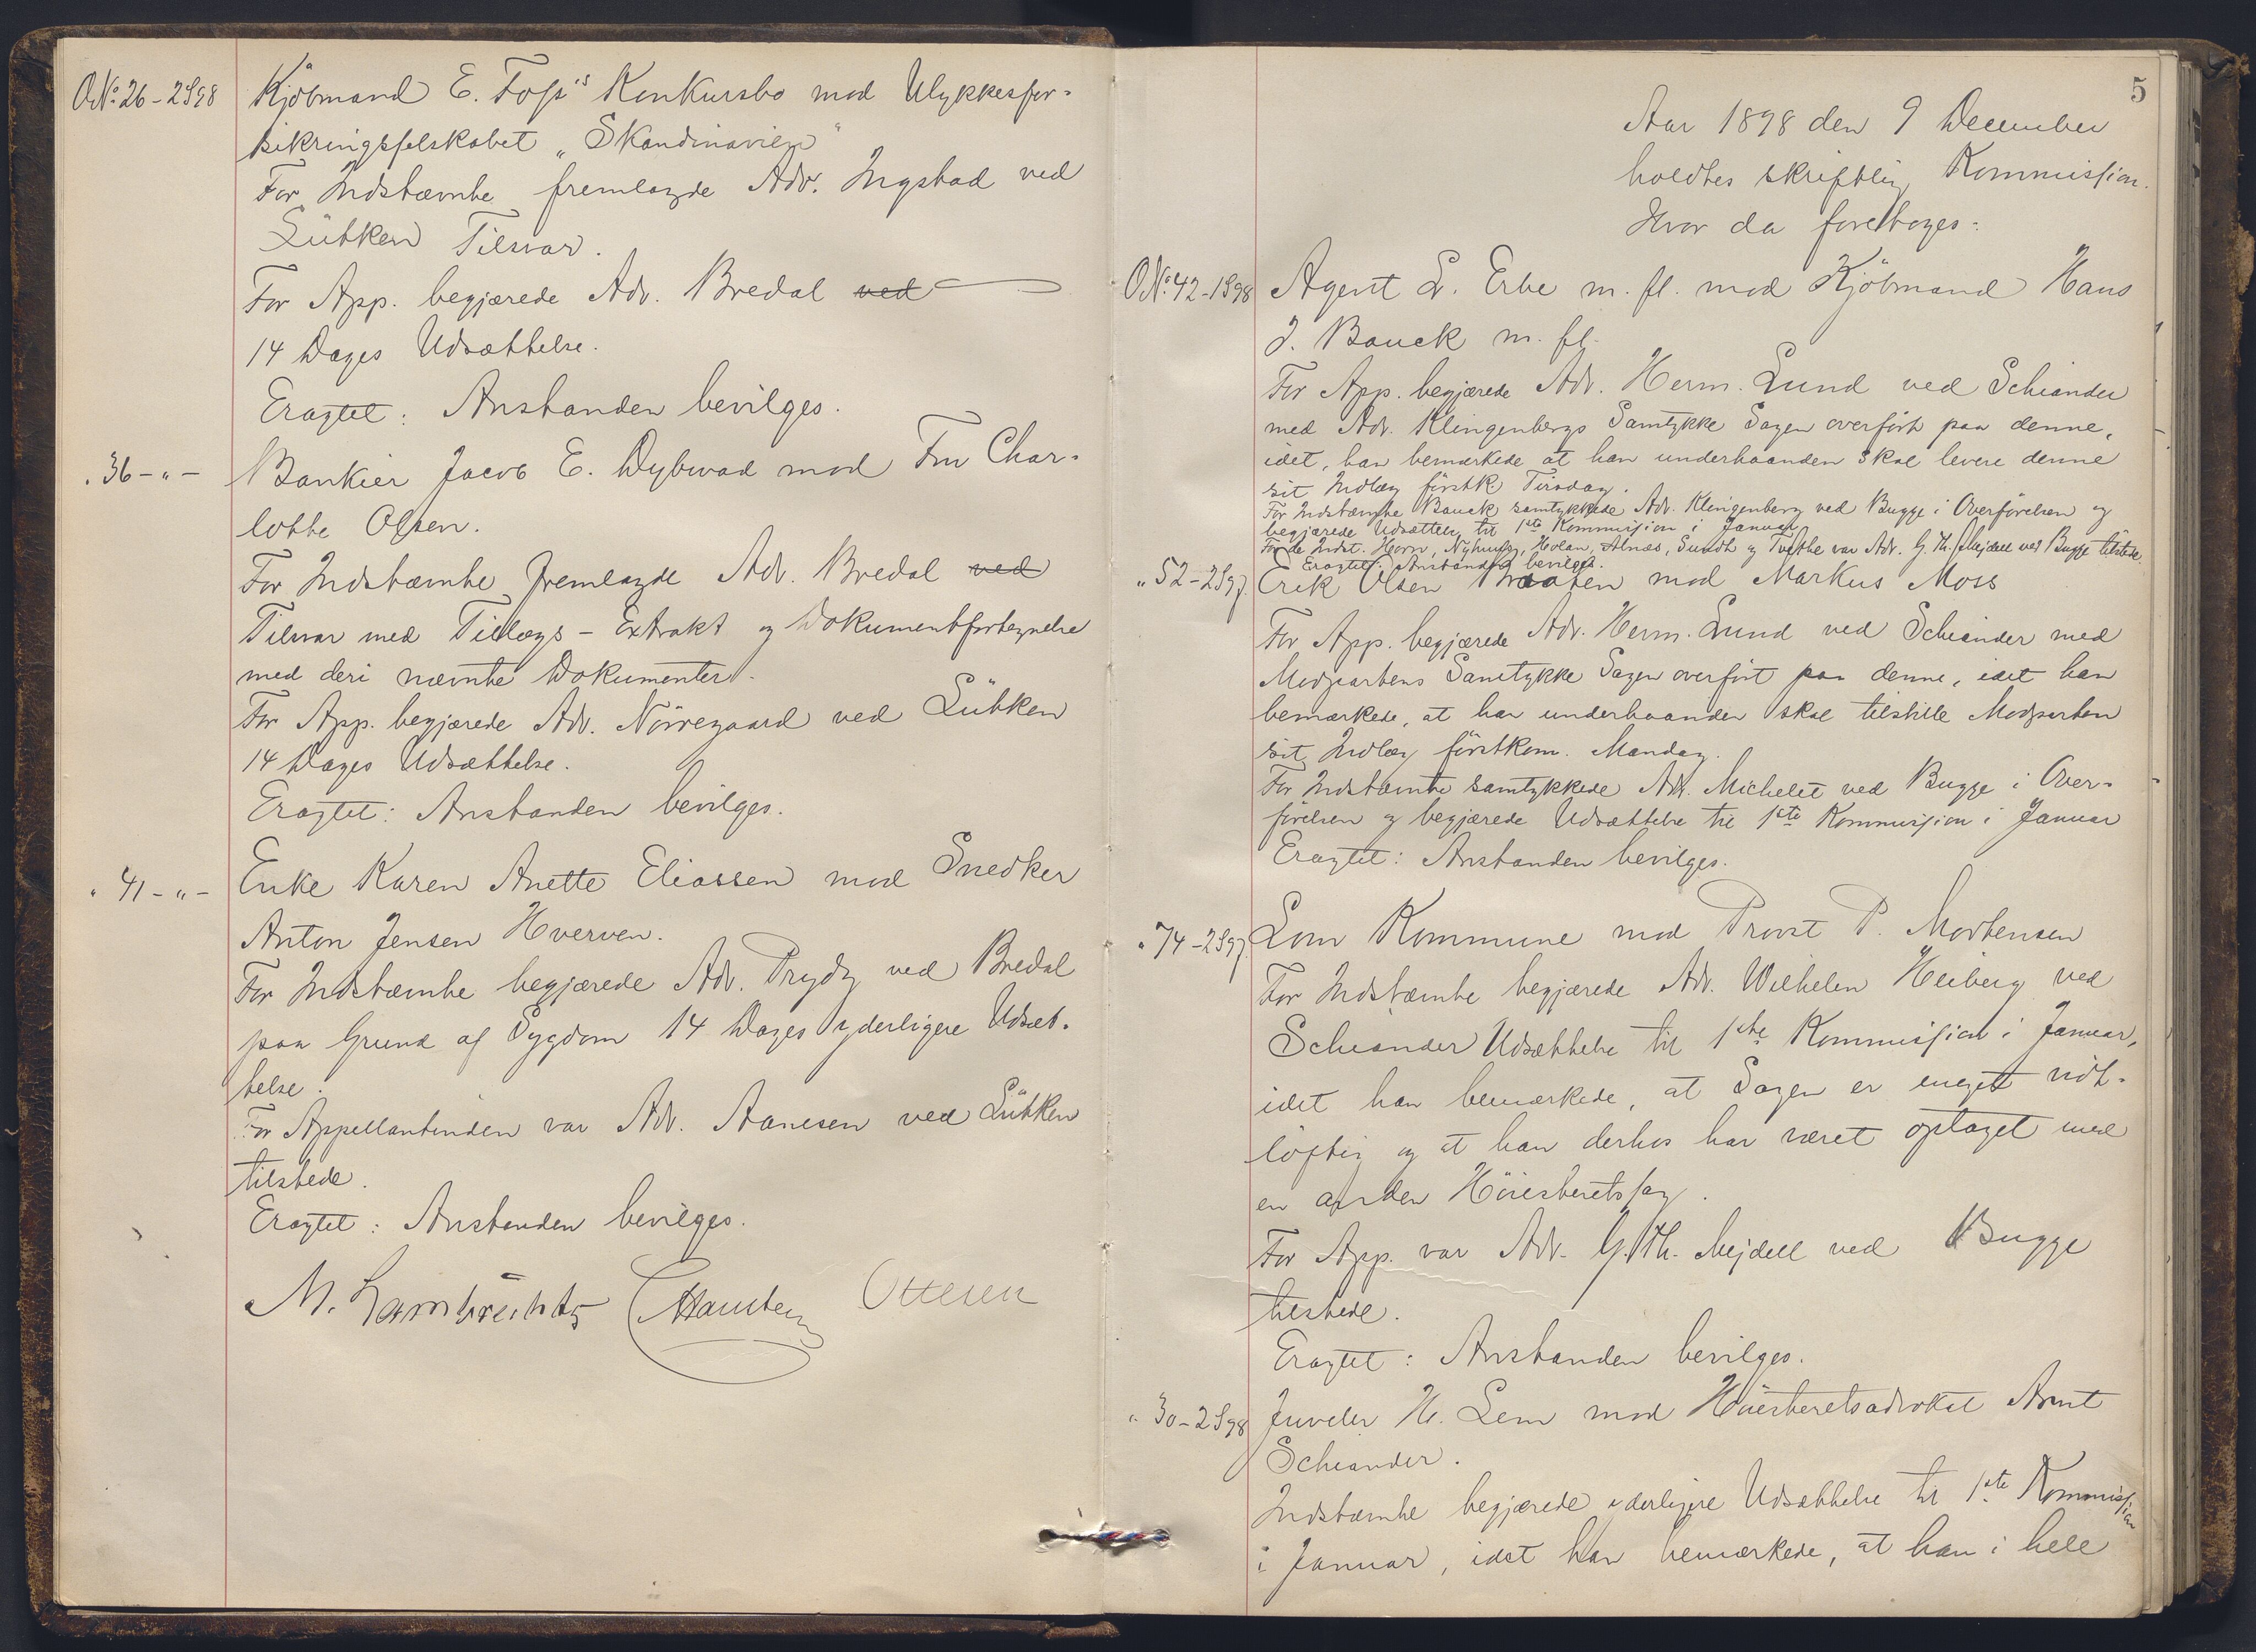 O.No. 26 - 2S98 Kjöbmand E. Foss's Konkursbo mod Ulykkesfor-
sikringsselskabet „Skandinavien“
For Indstævnte fremlagde Adv. Ingstad ved
Lütken Tilsvar.
For App. begjærede Adv. Bredal ved
14 Dages Udsættelse.
Eragtet: Anstanden bevilges.
" 36 - " - Bankier Jacob E. Dybwad mod Fru Char-
lotte Olsen.
For Indstævnte fremlagde Adv. Bredal ved
Tilsvar med Tillægs-Extrakt og Dokumentfortegnelse
med deri nævnte Dokumenter.
For App. begjærede Adv. Nörregaard ved Lütken
14 Dages Udsættelse.
Eragtet: Anstanden bevilges.
" 41 - " - Enke Karen Anette Eliassen mod Snedker
Anton Jensen Hverven.
For Indstævnte begjærede Adv. Prydz ved Bredal
paa Grund af Sygdom 14 Dages yderligere Udsæt-
telse.
For Appellantinden var Adv. Aanesen ved Lütken
tilstede.
Eragtet: Anstanden bevilges.
M. Lambrechts Ottesen
5
Aar 1898 den 9 December
holdtes skriftlig Kommission.
Hvor da foretoges:
O.No. 42 - 1S98 Agent L. Erbe m. fl. mod Kjöbmand Hans
J. Bauck m. fl.
For App. begjærede Adv. Herm. Lund ved Schiander
med Adv. Klingenbergs Samtykke Sagen overfört paa denne,
idet han bemærkede at han underhaanden skal levere denne
sit Indlæg förstk. Tirsdag.
For Indstævnte Bauck samtykkede Adv. Klingenberg ved Bugge i Overförelsen og
begjærede Udsættelse til 1ste Kommission i Januar
For de Indst. Horn, Nyhuus, Holan, Alnæs, Sundt og Tvethe var Adv. G. Th. Mejdell ved Bugge tilstede.
Eragtet: Anstanden bevilges.
" 52 - 2S97. Erik Olsen Braaten mod Markus Moss
For App. begjærede Adv. Herm. Lund ved Schiander med
Modpartens Samtykke Sagen overfört paa denne, idet han
bemærkede, at han underhaanden skal tilstille Modparten
sit Indlæg förstkom. Mandag.
For Indstævnte samtykkede Adv. Michelet ved Bugge i Over-
förelsen og begjærede Udsættelse til 1ste Kommission i Januar
Eragtet: Anstanden bevilges.
" 74 - 2S97. Lom Kommune mod Provst P. Mortensen
For Indstævnte begjærede Adv. Wilhelm Heiberg ved
Schiander Udsættelse til 1ste Kommission i Januar,
idet han bemærkede, at Sagen er meget vidt-
löftig og at han derhos har været optaget med
en anden Höiesteretssag.
For App. var Adv. G. Th. Mejdell ved Bugge
tilstede.
Eragtet: Anstanden bevilges.
" 30 - 2S98 Juveler H. Lem mod Höiesteretsadvokat Arnt
Schiander.
Indstævnte begjærede yderligere Udsættelse til 1ste Kommission
i Januar, idet han bemærkede, at han i hele